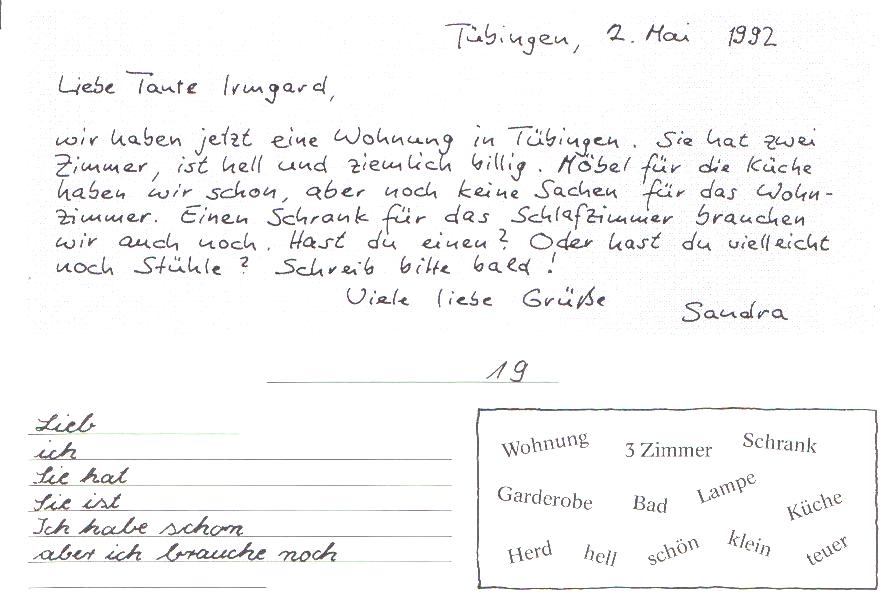 Tübingen, 2. Mai 1992
Liebe Tante Irmgard,
wir haben jetzt eine Wohnung in Tübingen. Sie hat zwei
Zimmer, ist hell und ziemlich billig. Möbel für die Küche
haben wir schon, aber noch keine Sachen für das Wohn-
zimmer. Einen Schrank für das Schlafzimmer brauchen
wir auch noch. Hast du einen? Oder hast du vielleicht
noch Stühle? Schreib bitte bald!
Viele liebe Grüße
Sandra
19
Lieb
ich
Sie hat
Sie ist
Ich habe schon
aber ich brauche noch
Wohnung 3 Zimmer Schrank
Garderobe Bad Lampe Küche
Herd hell schön klein teuer